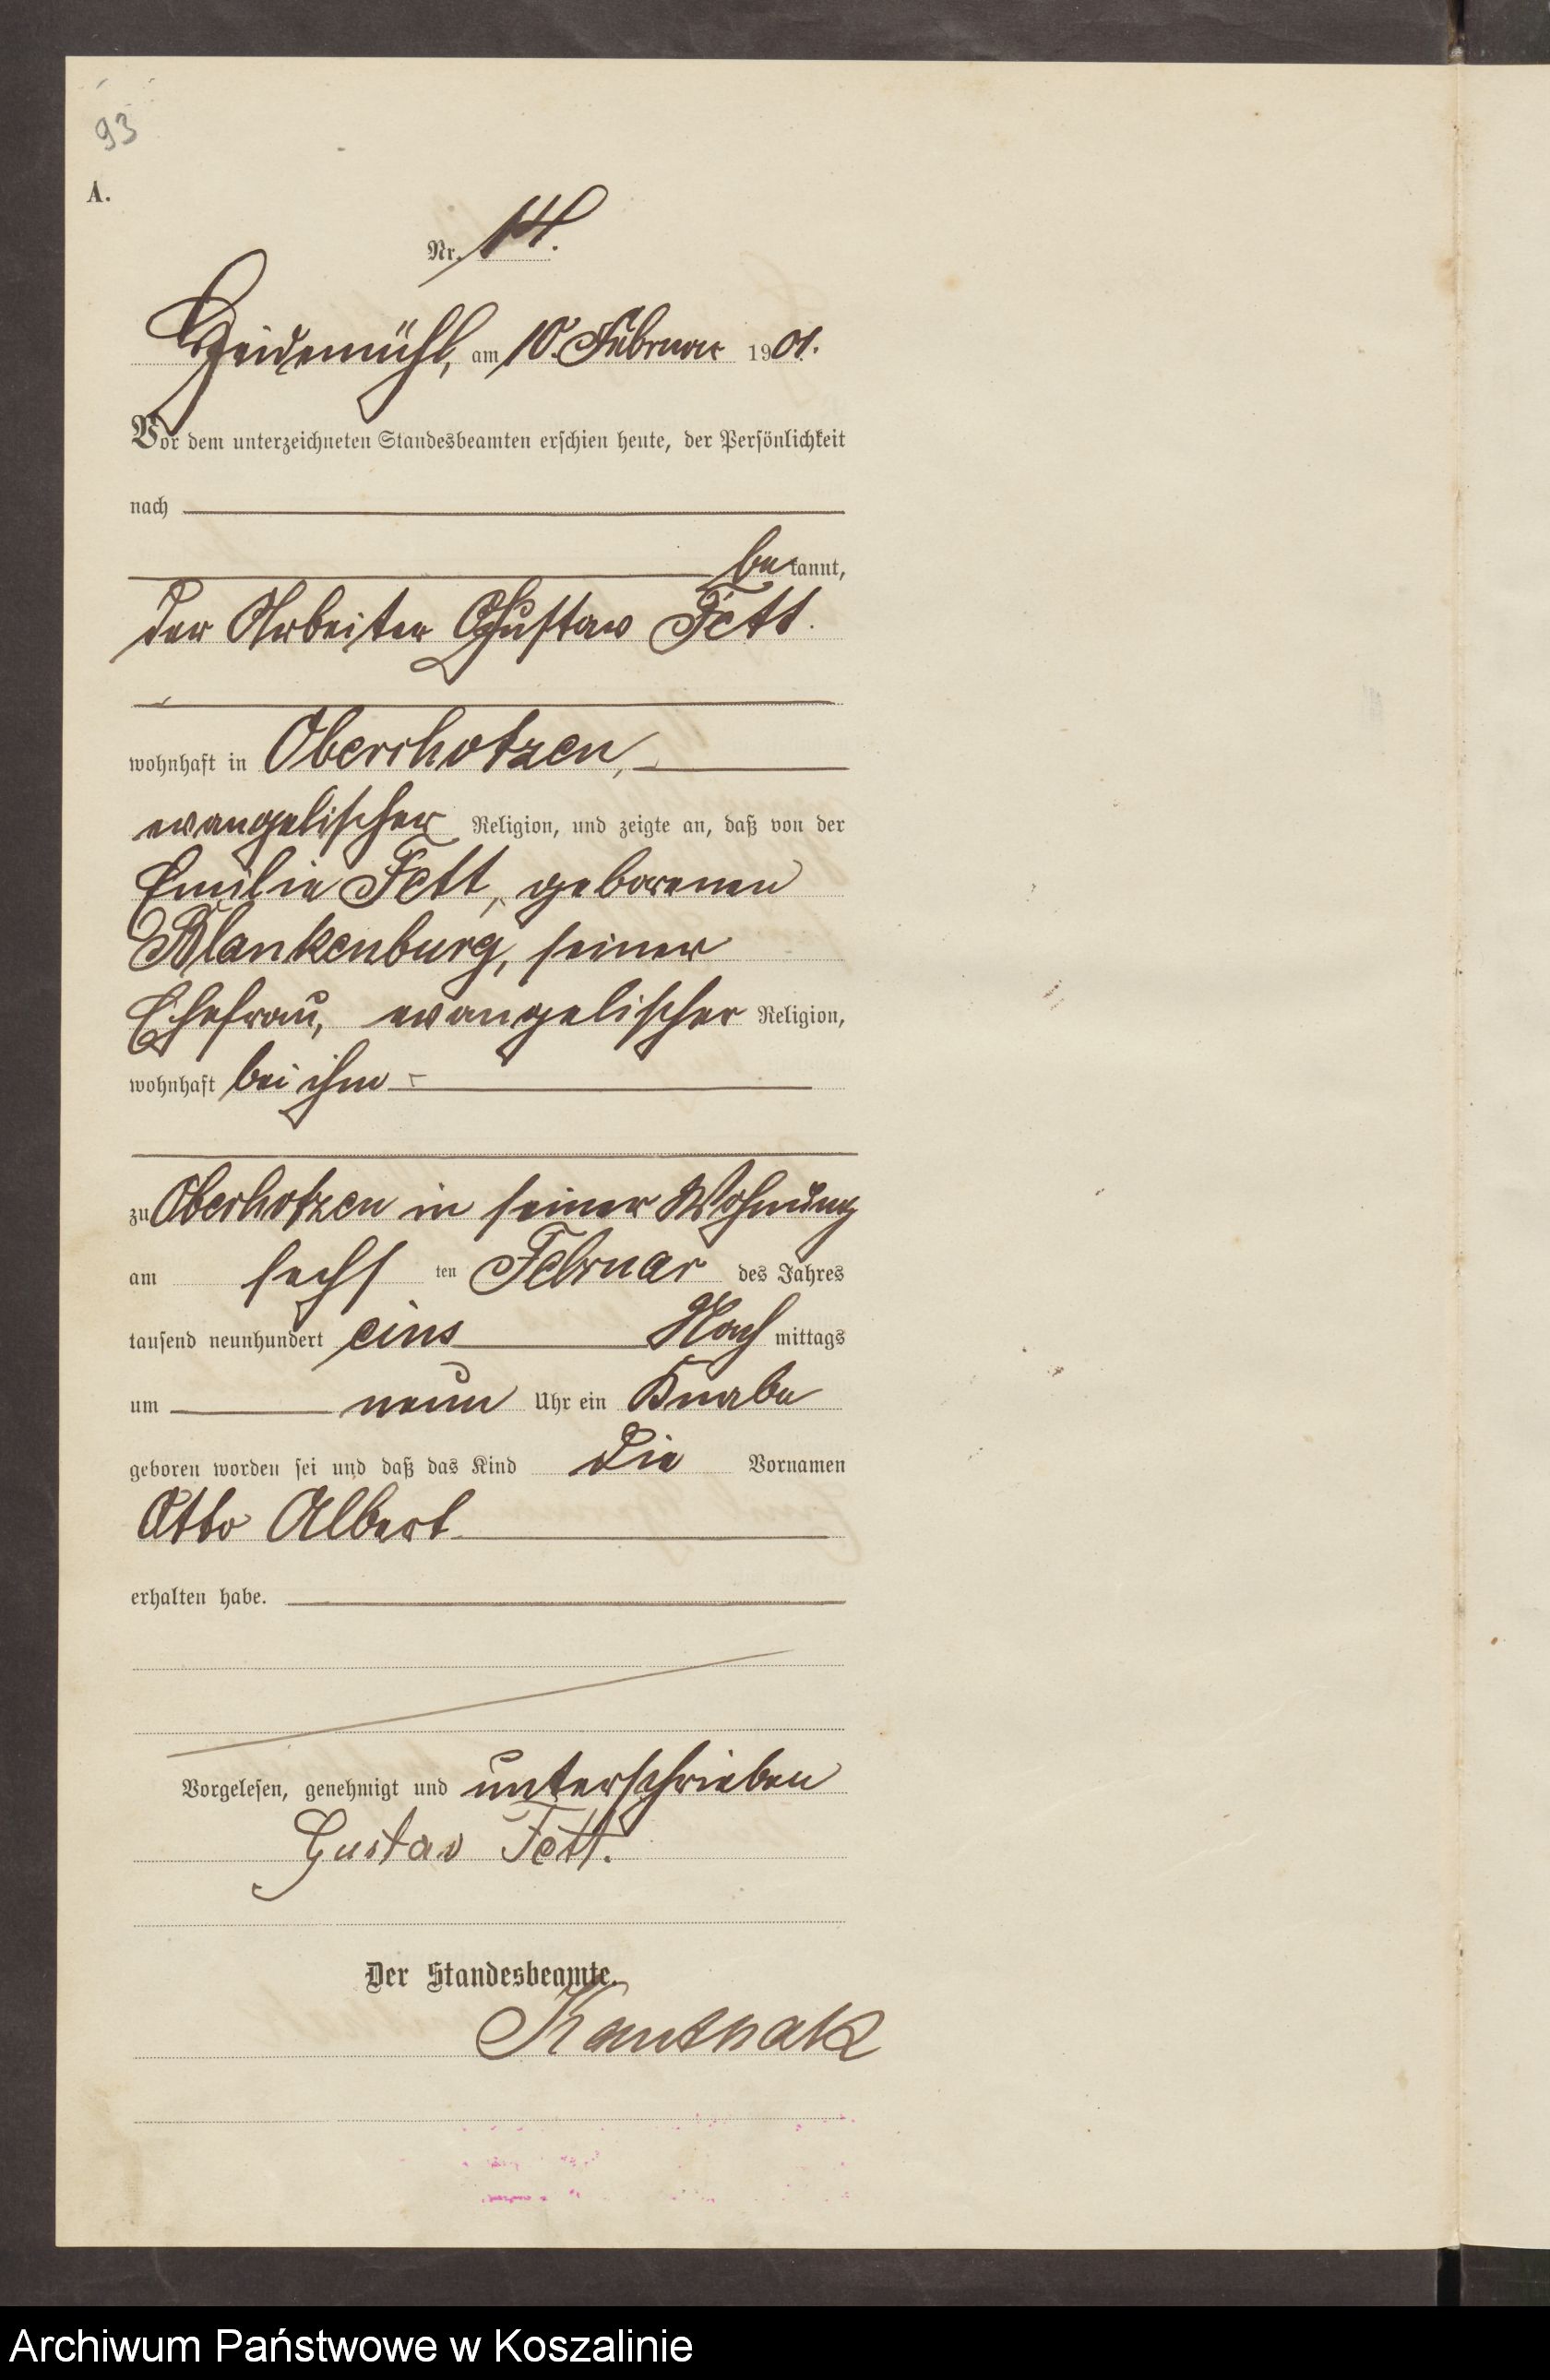 93
A.
Nr. 14.
Heidemühl, am 10. Februar 1901.
Vor dem unterzeichneten Standesbeamten erschien heute, der Persönlichkeit
nach
bekannt,
der Arbeiter Gustav Fett.
wohnhaft in Oberrhotzen,
evangelischer Religion, und zeigte an, daß von der
Emilie Fett, geborenen
Blankenburg, seiner
Ehefrau, evangelischer Religion,
wohnhaft bei ihm
zu Oberhotzen in seiner Wohnung
am sechsten Februar des Jahres
tausend neunhundert eins Nachmittags
um neun Uhr ein Knabe
geboren worden sei und daß das Kind die Vornamen
Otto Albert
erhalten habe.
Vorgelesen, genehmigt und unterschrieben
Gustav Fett.
Der Standesbeamte.
Archiwum Państwowe w Koszalinie